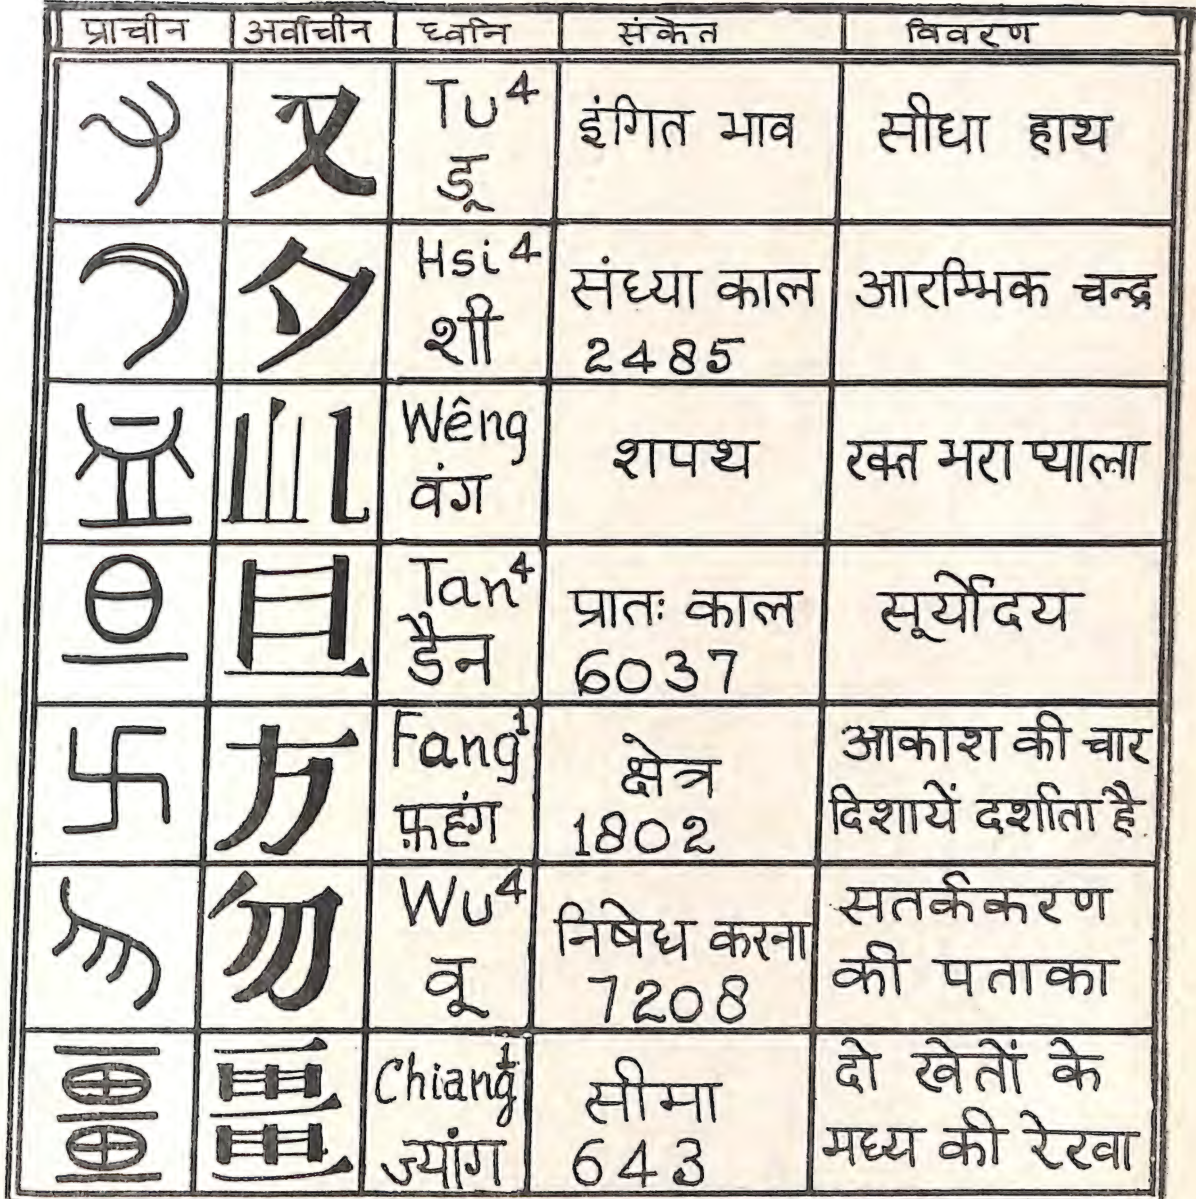 प्राचीन अर्वाचीन ध्वनि संकेत विवरण
又 Tu⁴ डू इंगित भाव सीधा हाथ
夕 Hsi⁴ शी संध्या काल 2485 आरम्भिक चन्द्र
皿 Wêng वंग शपथ रक्त भरा प्याला
旦 Tan⁴ डैन प्रातः काल 6037 सूर्योदय
卐 方 Fang¹ फ़हंग क्षेत्र 1802 आकाश की चार दिशायें दर्शाता है
勿 Wu⁴ वू निषेध करना 7208 सतर्ककरण की पताका
畺 Chiang¹ ज्यांग सीमा 643 दो खेतों के मध्य की रेखा